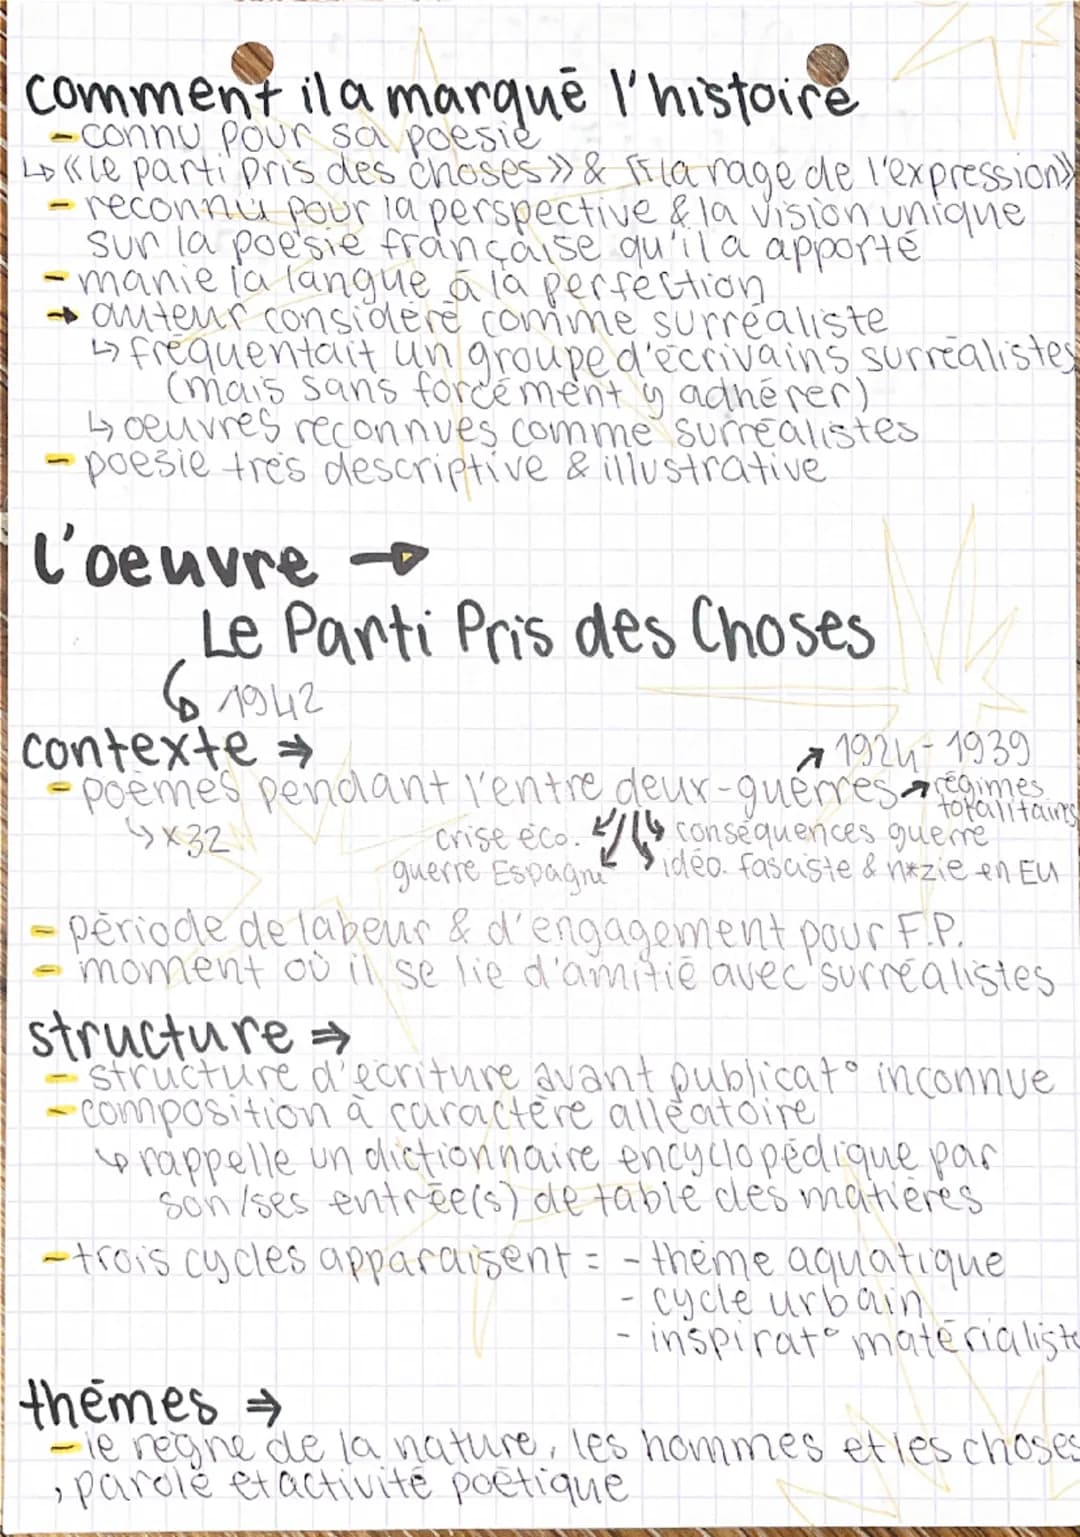 comment il a marqué l'histoire
- connu pour sa poesie
↳ «le parti pris des choses» & «la rage de l'expression»
- reconnu pour la perspective & la vision unique
sur la poésie française qu'il a apporté
- manie la langue à la perfection
→ auteur considéré comme surréaliste
↳ fréquentait un groupe d'écrivains surréalistes
(mais sans forcément y adhérer)
↳ oeuvres reconnues comme surréalistes
- poésie très descriptive & illustrative
l'oeuvre →
Le Parti Pris des Choses
↳ 1942
contexte ⇒
↗ 1924-1939
- poèmes pendant l'entre deux-guerres ↗ régimes
totalitaires
↳ x32
crise éco. ↙ ↳ conséquences guerre
guerre Espagne ↙ ↘ idéo. fasciste & n*zie en EU
- période de labeur & d'engagement pour F.P.
- moment où il se lie d'amitié avec surréalistes
structure ⇒
- structure d'écriture avant publicat° inconnue
- composition à caractère alléatoire
↳ rappelle un dictionnaire encyclopédique par
son/ses entrée(s) de table des matières
- trois cycles apparaisent = - thème aquatique
- cycle urbain
- inspirat° matérialiste
thèmes ⇒
- le règne de la nature, les hommes et les choses
, parole et activité poétique